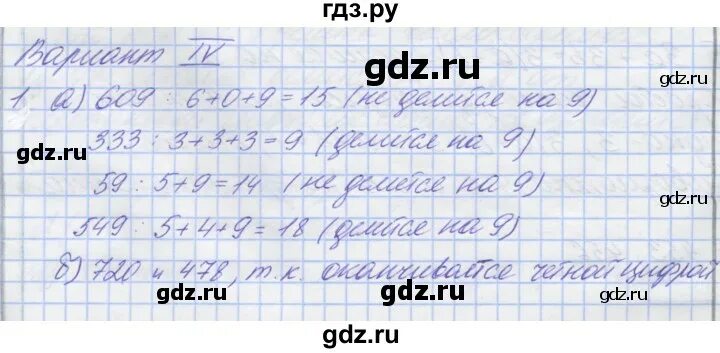 гдз.ру
Вариант IV
gdz.ru
gdz.ru
1. а) 609 : 6+0+9=15 (не делится на 9)
gdz.ru
333 : 3+3+3=9 (делится на 9)
gdz.ru
gdz.ru
59 : 5+9=14 (не делится на 9)
549 : 5+4+9=18 (делится на 9)
gdz.ru
gdz.ru
б) 720 и 478, т.к. оканчивается чётной цифрой
gdz.ru
gdz.ru
gdz.ru